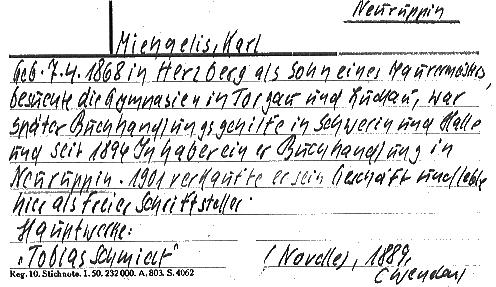 Neuruppin
Miengelis, Karl
Geb. 7.4. 1868 in Herzberg als Sohn eines Maurermeisters,
besuchte die Gymnasien in Torgau und Luckau, war
später Buchhandlungsgehilfe in Schwerin und Halle
und seit 1894 Inhaber einer Buchhandlung in
Neuruppin. 1901 verkaufte er sein Geschäft und lebte
hier als freier Schriftsteller.
Hauptwerke:
"Tobias Schmidt" (Novelle), 1889.
Reg. 10. Stichnote. 1. 50. 232 000. A. 803. S. 4062